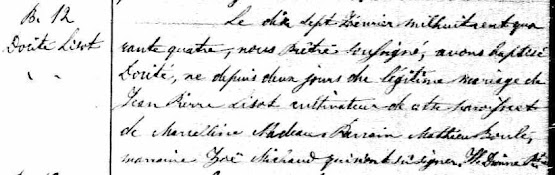 B. 12
Dorité Lisot
Le dix sept Février mil huit cent qua
rante quatre, nous Prêtre soussigné, avons baptisé
Dorité, né depuis deux jours du légitime mariage de
Jean Pierre Lisot cultivateur de cette paroisse et
de Marcelline Nadeau Parrain Mathieu Boulé,
marraine Zoë Michaud qui n'ont su signer.